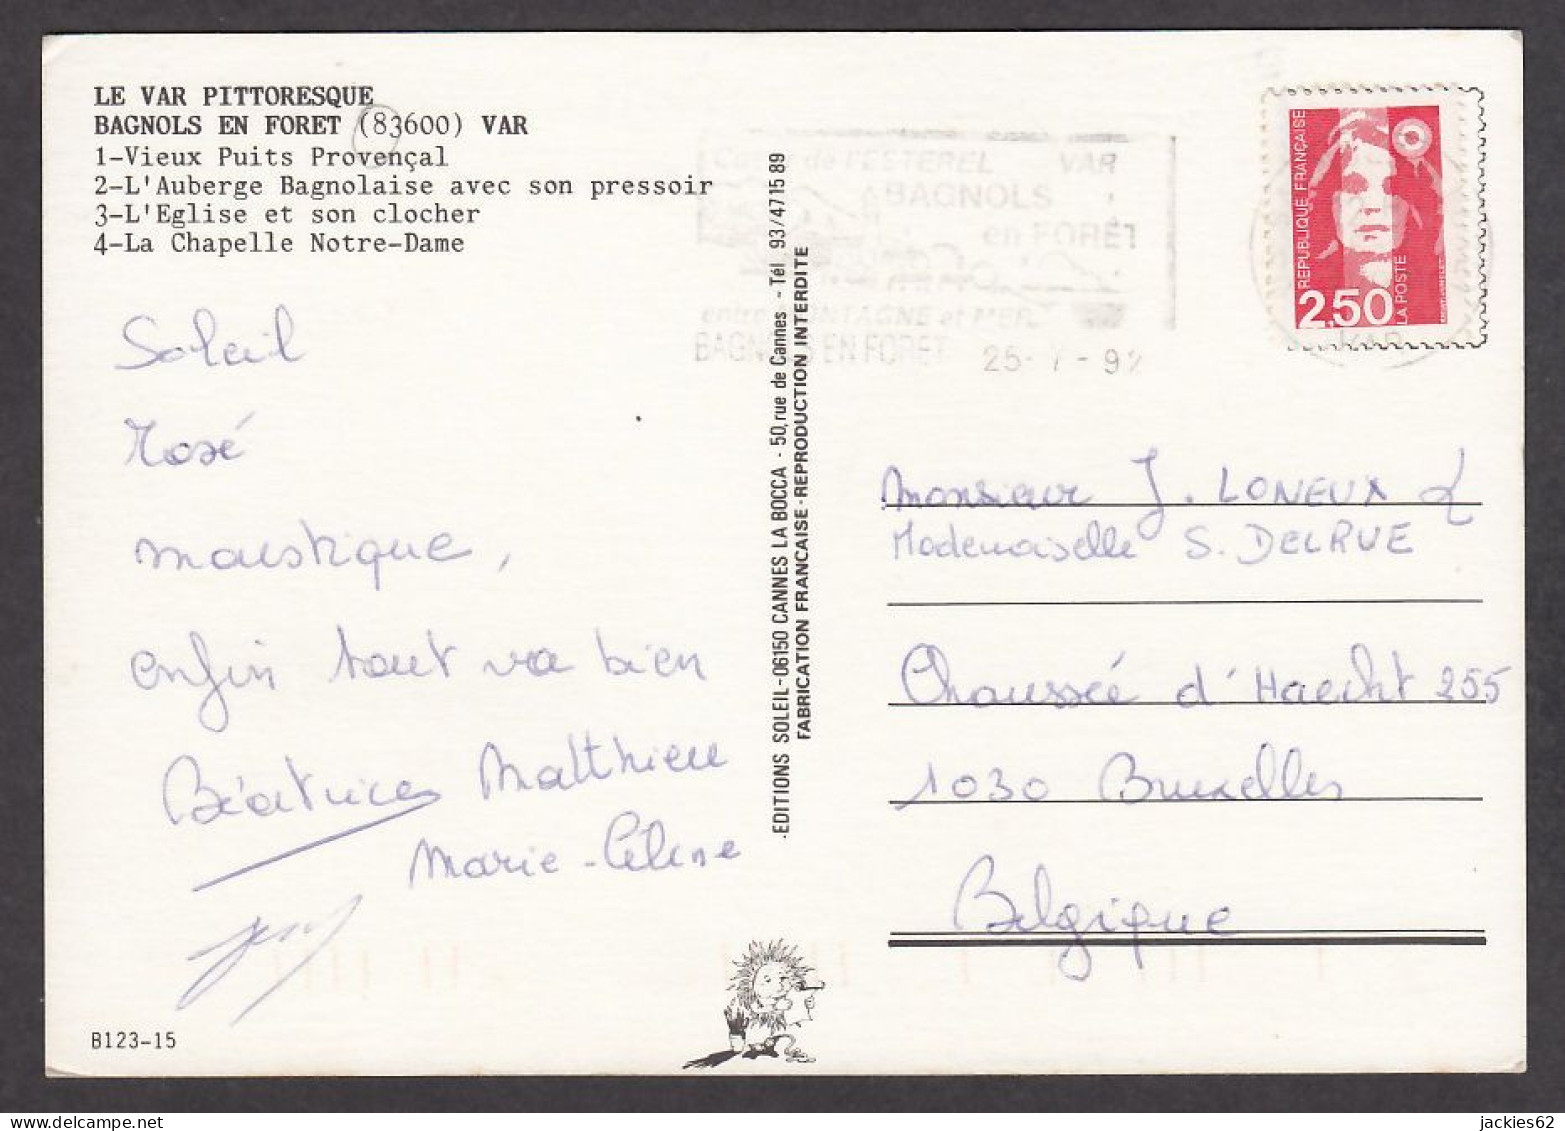 LE VAR PITTORESQUE
BAGNOLS EN FORET (83600) VAR
1-Vieux Puits Provençal
2-L'Auberge Bagnolaise avec son pressoir
3-L'Eglise et son clocher
4-La Chapelle Notre-Dame
Soleil
Rosé
moustique,
enfin tout va bien
Béatrice Matthieu
Marie-Céline
B123-15
EDITIONS SOLEIL-06150 CANNES LA BOCCA - 50, rue de Cannes - Tél. 93/47 15 89
FABRICATION FRANCAISE - REPRODUCTION INTERDITE
de l'ESTEREL VAR
BAGNOLS
en FORÊT
entre MONTAGNE et MER
BAGNOLS EN FORET 25- -92
REPUBLIQUE FRANÇAISE
2,50
LA POSTE
VAR
Monsieur J. LONEUX &
Mademoiselle S. DELRUE
Chaussée d'Haecht 255
1030 Bruxelles
Belgique
jackies62